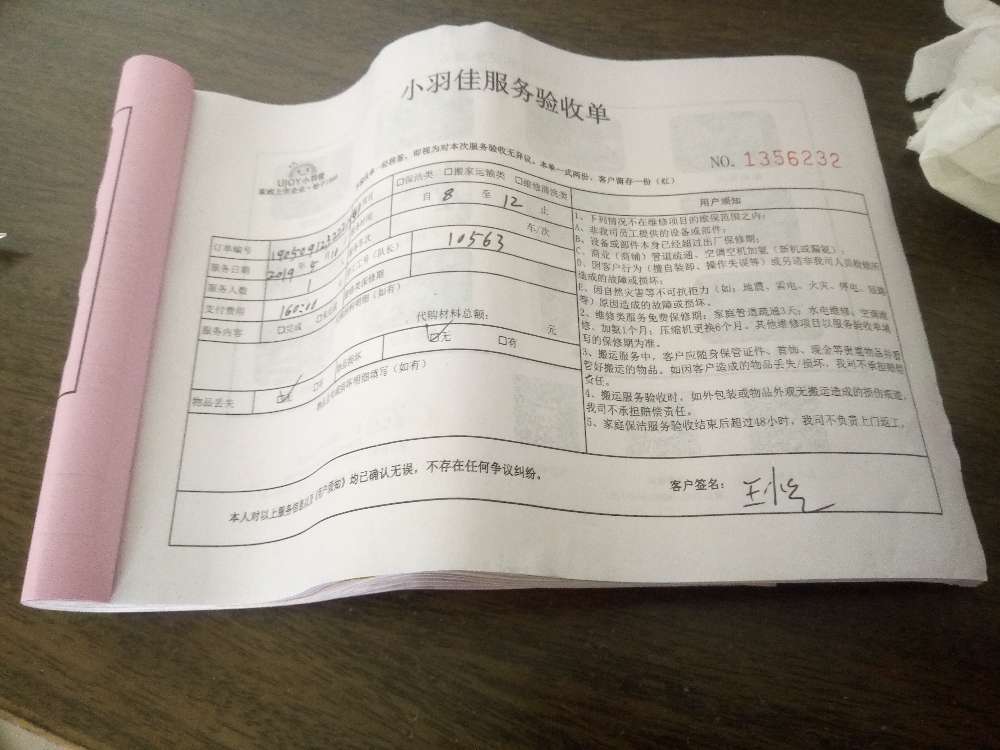 小羽佳服务验收单
NO. 1356232
UJOY小羽佳
一经核签,即视为对本次服务验收无异议,本单一式两份,客户留存一份(红)
订单编号
□保洁类 □搬家运输类 □维修清洗类
服务日期 2019年5月
自 8 至 12 止
服务人数 1
车/次
支付费用 160:00
工号(队长) 10563
服务内容 □完成
维修类保修期
(如有)
代购材料总额: 元
物品丢失
□无 □有
物品损坏
☑无 □有
明细填写(如有)
用户须知
1、下列情况不在维修项目的维保范围之内:
A、非我司员工提供的设备或部件;
B、设备或部件本身已经超过出厂保修期;
C、商业(商铺)管道疏通、空调空机加氟(新机或漏氟);
D、因客户行为(擅自装卸、操作失误等)或另请非我司人员检修所
造成的故障或损坏;
E、因自然灾害等不可抗拒力(如:地震、雷电、火灾、停电、短路
等)原因造成的故障或损坏。
2、维修类服务免费保修期:家庭管道疏通3天;水电维修、空调维
修、加氟1个月;压缩机更换6个月。其他维修项目以服务验收单填
写的保修期为准。
3、搬运服务中,客户应随身保管证件、首饰、现金等贵重物品并看
管好搬运的物品。如因客户造成的物品丢失/损坏,我司不承担赔偿
责任。
4、搬运服务验收时,如外包装或物品外观无搬运造成的损伤痕迹,
我司不承担赔偿责任。
5、家庭保洁服务验收结束后超过48小时,我司不负责上门返工。
本人对以上服务信息以及《用户须知》均已确认无误,不存在任何争议纠纷。
客户签名: